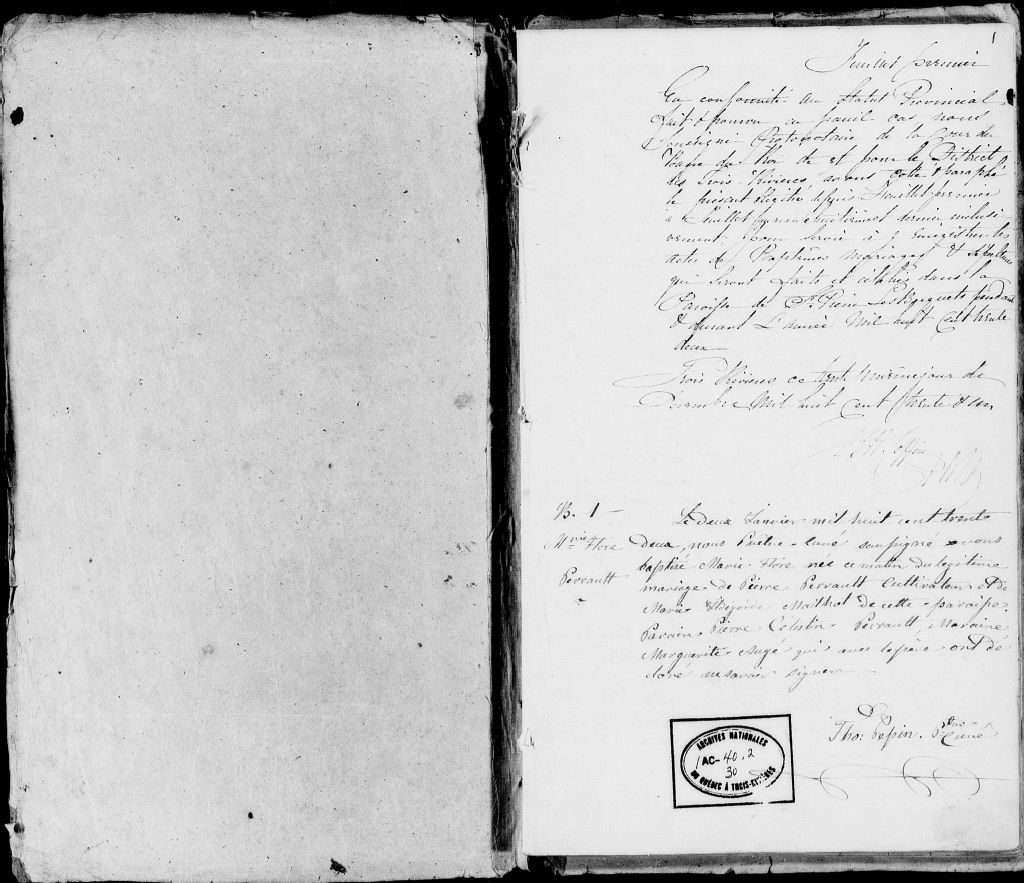 1
Feuillet premier
En conformité au Statut Provincial
fait & pourvu en pareil cas nous
Soussigné Protonotaire de la Cour du
Banc du Roi de et pour le District
des Trois-Rivières avons cotté & paraphé
le présent Régitre depuis Feuillet premier
a Feuillet et dernier inclusi
vement, pour Servir à y Enregistrer les
Actes de Baptêmes Mariages & Sépultures
qui Seront faits et célébrés dans la
Paroisse de St. Pierre Les Becquets pendant
& durant L'année Mil huit Cent trente
deux
Trois Rivières ce trente unième jour de
Décembre Mil huit Cent trente & un
B. 1 -
Mrie Flore
Perrault
Le deux Janvier mil huit cent trente
deux, nous Prêtre-Curé soussigné avons
baptisé Marie Flore née ce matin du légitime
mariage de Pierre Perrault Cultivateur et de
Marie Mailhot de cette paroisse.
Parain Pierre Celestin Perrault Maraine
Marguerite Augé qui avec le père ont dé
claré ne savoir signer
Thos: Pepin. Ptre
Curé
ARCHIVES NATIONALES
AC- 40.2
30
DU QUÉBEC À TROIS-RIVIÈRES